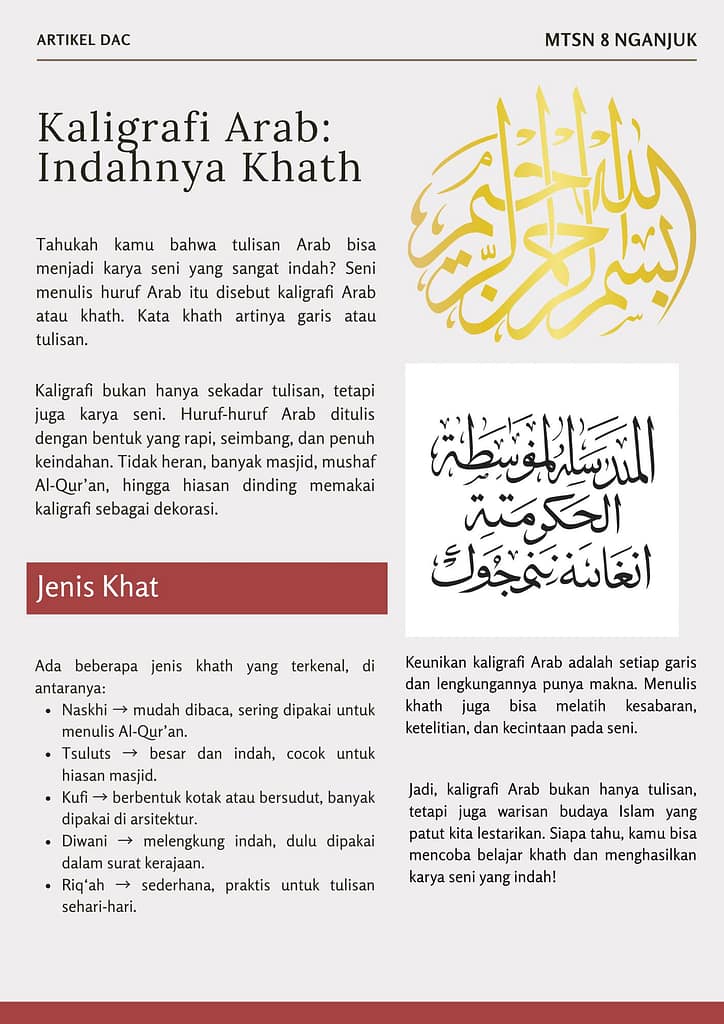 ARTIKEL DAC
MTSN 8 NGANJUK
Kaligrafi Arab:
Indahnya Khath
Tahukah kamu bahwa tulisan Arab bisa
menjadi karya seni yang sangat indah? Seni
menulis huruf Arab itu disebut kaligrafi Arab
atau khath. Kata khath artinya garis atau
tulisan.
Kaligrafi bukan hanya sekadar tulisan, tetapi
juga karya seni. Huruf-huruf Arab ditulis
dengan bentuk yang rapi, seimbang, dan penuh
keindahan. Tidak heran, banyak masjid, mushaf
Al-Qur’an, hingga hiasan dinding memakai
kaligrafi sebagai dekorasi.
Jenis Khat
Ada beberapa jenis khath yang terkenal, di
antaranya:
• Naskhi → mudah dibaca, sering dipakai untuk
menulis Al-Qur’an.
• Tsuluts → besar dan indah, cocok untuk
hiasan masjid.
• Kufi → berbentuk kotak atau bersudut, banyak
dipakai di arsitektur.
• Diwani → melengkung indah, dulu dipakai
dalam surat kerajaan.
• Riq‘ah → sederhana, praktis untuk tulisan
sehari-hari.
بسم الله الرحمن الرحيم
المدرسة المتوسطة
الحكومية
Keunikan kaligrafi Arab adalah setiap garis
dan lengkungannya punya makna. Menulis
khath juga bisa melatih kesabaran,
ketelitian, dan kecintaan pada seni.
Jadi, kaligrafi Arab bukan hanya tulisan,
tetapi juga warisan budaya Islam yang
patut kita lestarikan. Siapa tahu, kamu bisa
mencoba belajar khath dan menghasilkan
karya seni yang indah!